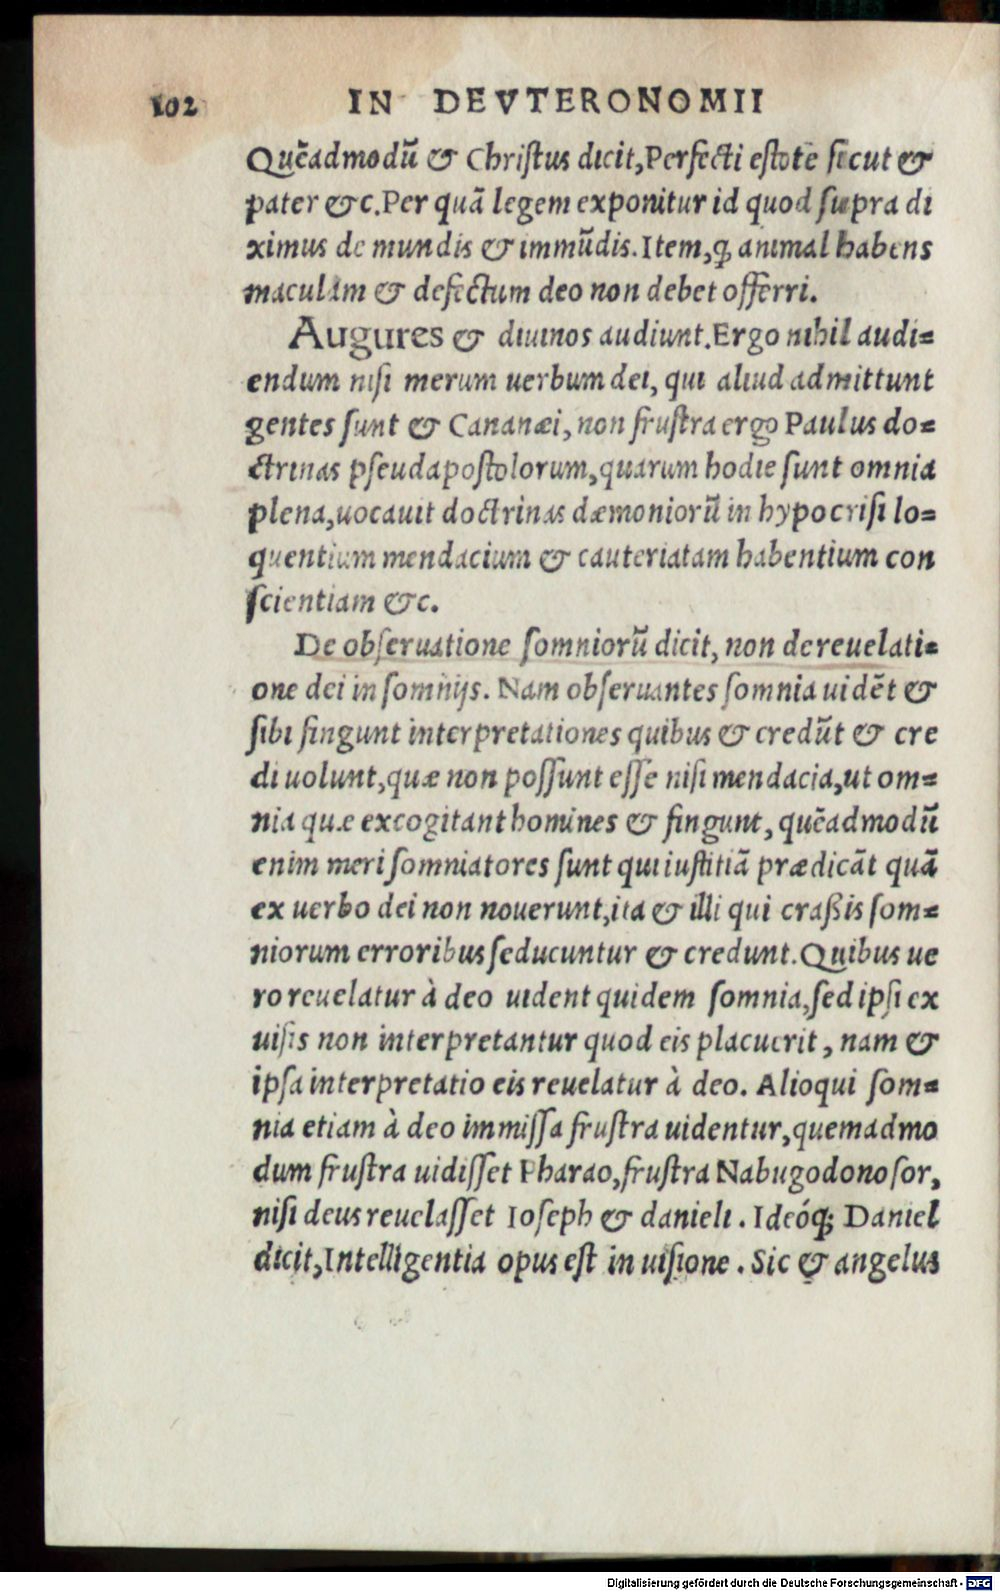 102 IN DEVTERONOMII
Quẽadmodũ & Chriſtus dicit, Perfecti eſtote ſicut &
pater &c. Per quã legem exponitur id quod ſupra di
ximus de mundis & immũdis. Item, ꝙ animal habens
maculam & defectum deo non debet offerri.
Augures & diuinos audiunt. Ergo nihil audi=
endum niſi merum uerbum dei, qui aliud admittunt
gentes ſunt & Cananæi, non fruſtra ergo Paulus do=
ctrinas pſeudapoſtolorum, quarum hodie ſunt omnia
plena, uocauit doctrinas dæmoniorũ in hypocriſi lo=
quentium mendacium & cauteriatam habentium con
ſcientiam &c.
De obſeruatione ſomniorũ dicit, non de reuelati=
one dei in ſomnijs. Nam obſeruantes ſomnia uidẽt &
ſibi fingunt interpretationes quibus & credũt & cre
di uolunt, quæ non poſſunt eſſe niſi mendacia, ut om=
nia quæ excogitant homines & fingunt, quẽadmodũ
enim meri ſomniatores ſunt qui iuſtitiã prædicãt quã
ex uerbo dei non nouerunt, ita & illi qui craßis ſom=
niorum erroribus ſeducuntur & credunt. Quibus ue
ro reuelatur à deo uident quidem ſomnia, ſed ipſi ex
uiſis non interpretantur quod eis placuerit, nam &
ipſa interpretatio eis reuelatur à deo. Alioqui ſom=
nia etiam à deo immiſſa fruſtra uidentur, quemadmo
dum fruſtra uidiſſet Pharao, fruſtra Nabugodonoſor,
niſi deus reuelaſſet Ioſeph & danieli. Ideóq; Daniel
dicit, Intelligentia opus eſt in uiſione. Sic & angelus
Digitalisierung gefördert durch die Deutsche Forschungsgemeinschaft - DFG